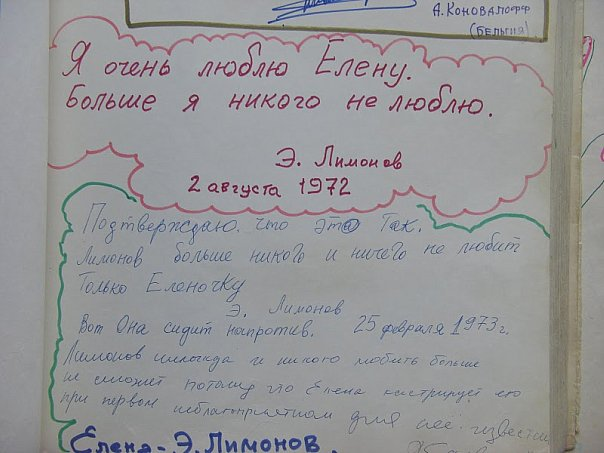 А. Коновалофф
(Бельгия)
Я очень люблю Елену.
Больше я никого не люблю.
Э. Лимонов
2 августа 1972
Подтверждаю, что это так.
Лимонов больше никого и ничего не любит
Только Еленочку
Э. Лимонов
Вот Она сидит напротив. 25 февраля 1973 г.
Лимонов никогда и никого любить больше
не сможет потому что Елена кастрирует его
при первом неблагоприятном для нее известии
Елена - Э. Лимонов.